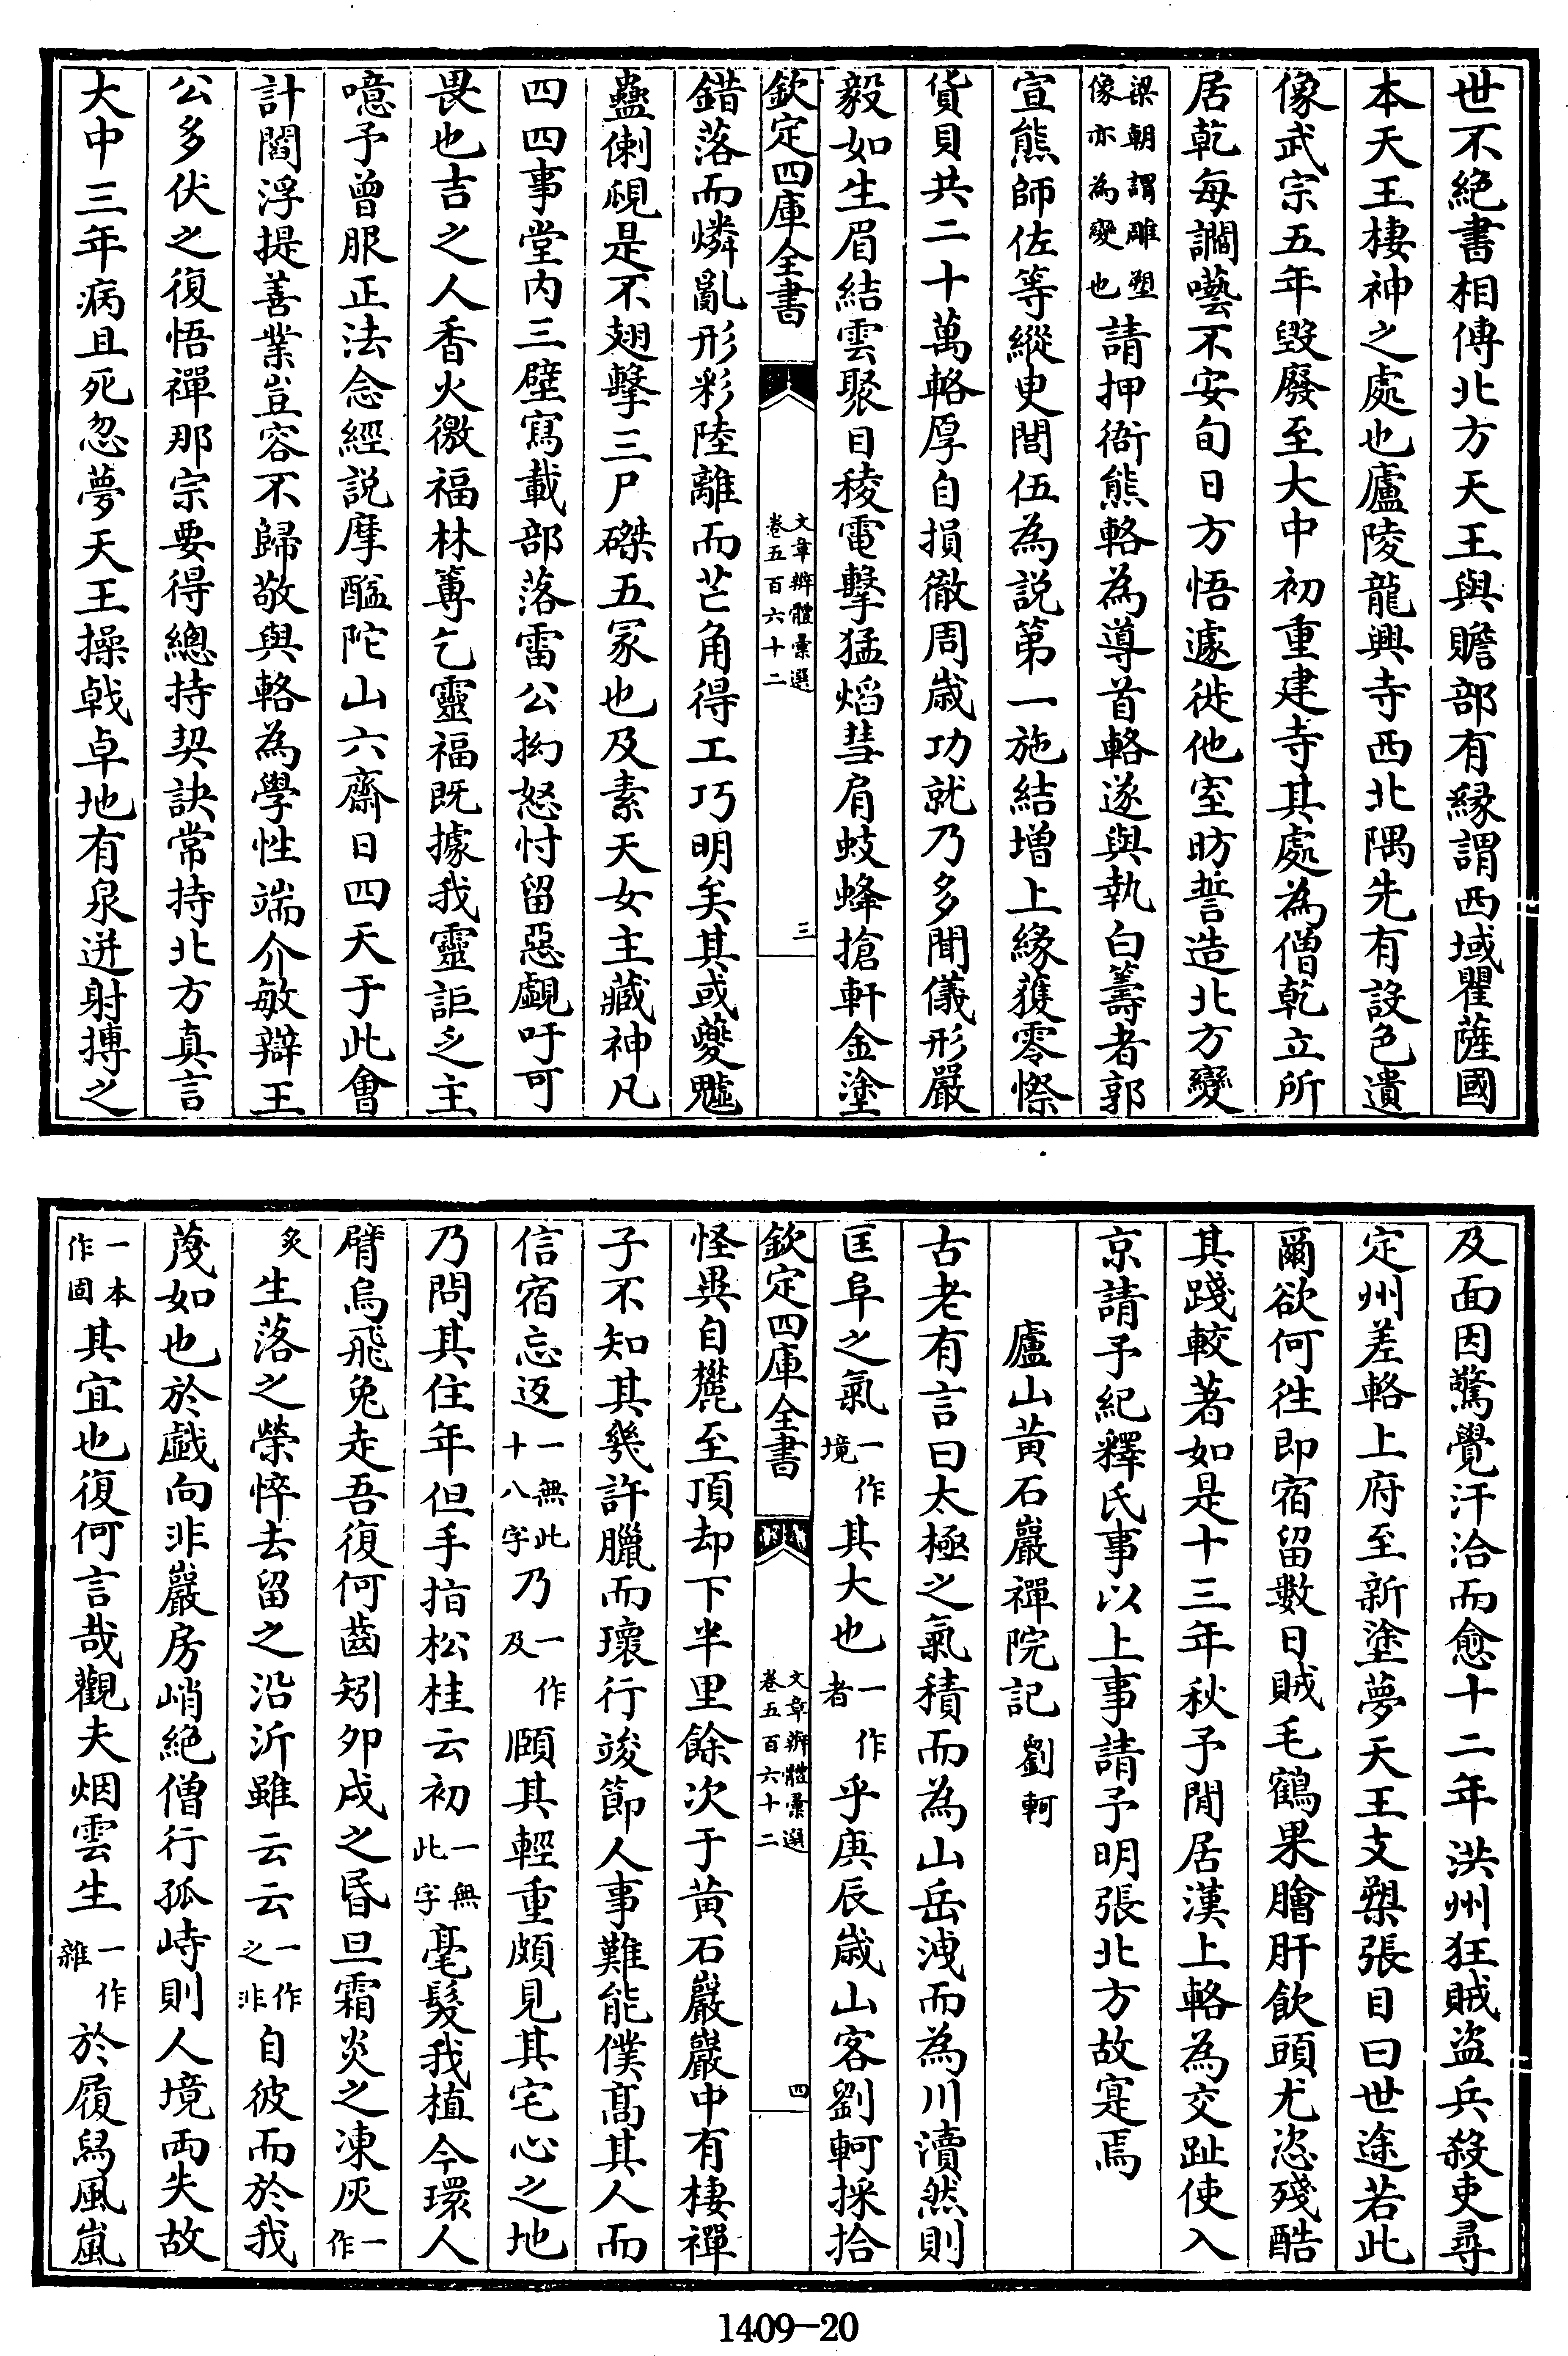 世不絶書相傳北方天王與贍部有縁謂西域瞿薩國
本天王棲神之處也廬陵龍興寺西北隅先有設色遺
像武宗五年毀廢至大中初重建寺其處為僧乾立所
居乾每讇囈不安旬日方悟遽徙他室昉誓造北方變
梁朝謂雕塑像亦為變也請押衙熊輅為導首輅遂與執白籌者郭
宣熊師佐等縱㬰閭伍為説第一施結增上緣獲零憏
貨貝共二十萬輅厚自損徹周歲功就乃多聞儀形嚴
毅如生眉結雲聚目稜電擊猛熖彗肩蚑蜂搶軒金塗
欽定四庫全書
文章辨體彚選
卷五百六十二
三
錯落而燐亂形彩陸離而芒角得工巧明矣其或夔魖
蠱㑦覕是不翅擊三尸磔五冢也及素天女主藏神凡
四四事堂内三壁寫載部落雷公抝怒忖留惡覷吁可
畏也吉之人香火徼福林篿乞靈福既據我靈詎乏主
噫予曾服正法念經説摩醯陀山六齋日四天于此會
計閻浮提善業豈容不歸敬與輅為學性端介敏辯王
公多伏之復悟禪那宗要得總持契訣常持北方真言
大中三年病且死忽夢天王操戟卓地有泉迸射摶之
及面因驚覺汗洽而愈十二年洪州狂賊盜兵殺吏尋
定州差輅上府至新塗夢天王支槊張目曰世途若此
爾欲何往即宿留數日賊毛鶴果膾肝飲頭尤恣殘酷
其踐較著如是十三年秋予閒居漢上輅為交趾使入
京請予紀釋氏事以上事請予明張北方故寔焉
廬山黄石巖禪院記 劉軻
古老有言曰太極之氣積而為山岳洩而為川瀆然則
匡阜之氣一作境其大也一作者乎庚辰歲山客劉軻採拾
欽定四庫全書
文章辨體彚選
卷五百六十二
四
怪異自麓至頂却下半里餘次于黄石巖巖中有棲禪
子不知其幾許臘而壞行竣節人事難能僕髙其人而
信宿忘返一無此十八字乃一作及頤其輕重頗見其宅心之地
乃問其住年但手指松桂云初一無此字毫髮我植今環人
臂烏飛兔走吾復何齒矧夘戍之昏旦霜炎之凍灰一作
炙生落之榮悴去留之沿泝雖云云一作之非自彼而於我
蔑如也於戯向非巖房峭絶僧行孤峙則人境兩失故
一本作固其宜也復何言哉觀夫烟雲生一作雜於履舄風嵐
1409-20